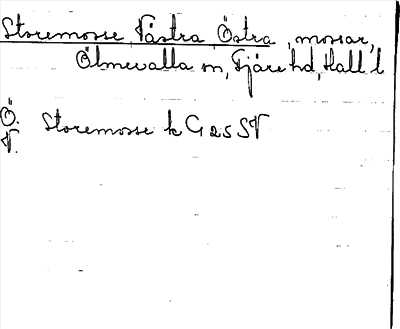 Storemosse, Västra, Östra, mossar,
Ölmevalla sn, Fjäre hd, Hall. l
Ö. Storemosse k G 25 SV
V.